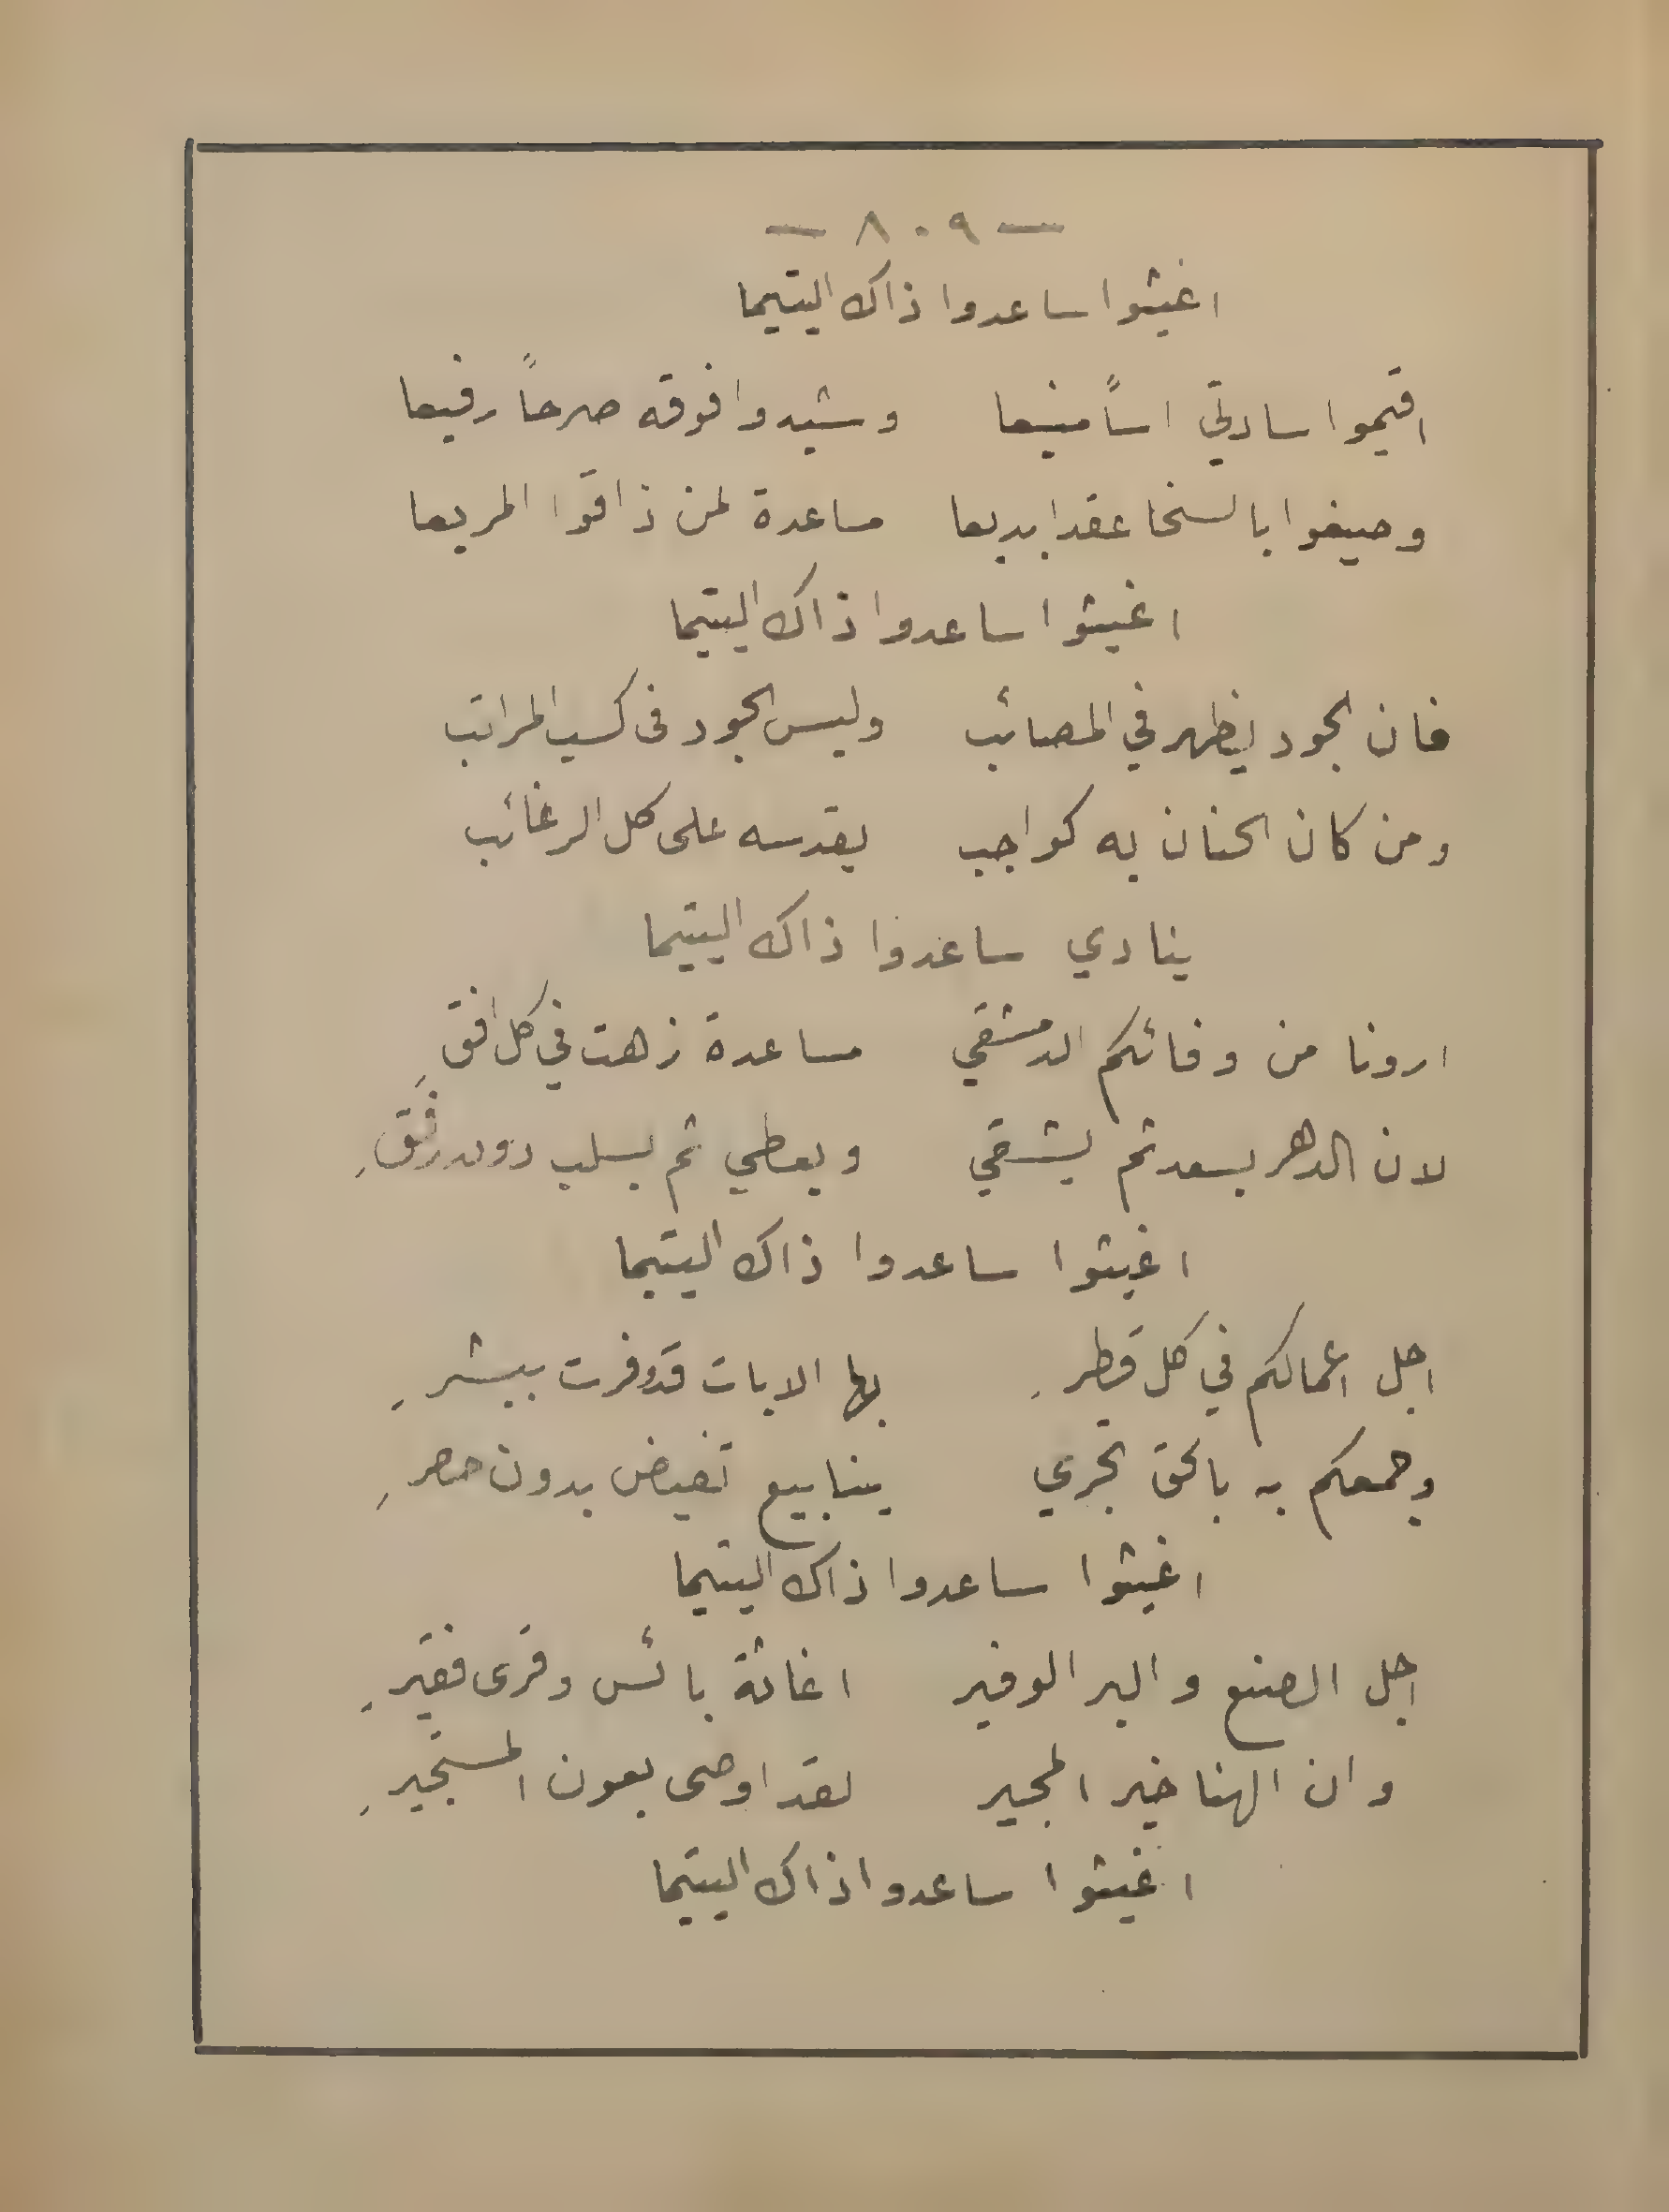 — ٨٠٩ —
اغيثوا ساعدوا ذاك اليتيما
اقيموا سادتي اساً منيعا وشيدوا فوقه صرحاً رفيعا
وصيغوا بالسخا عقدا بديعا مساعدة لمن ذاقوا المريعا
اغيثوا ساعدوا ذاك اليتيما
فان الجود يظهر في المصائب وليس الجود في كسب المراتب
ومن كان الحنان به كواجب يقدسه على كل الرغائب
ينادي ساعدوا ذاك اليتيما
ارونا من وفائكم الدمشقي مساعدة زهت في كل افقِ
لان الدهر يسعد ثم يشقي ويعطي ثم يسلب دون رفقِ
اغيثوا ساعدوا ذاك اليتيما
اجل اعمالكم في كل قطرِ بها الايات قد وفرت ببشرِ
وجمعكم به بالحق تجري ينابيع تفيض بدون حصرِ
اغيثوا ساعدوا ذاك اليتيما
اجل الصنع والبر الوفير اغاثة بائس وقرى فقيرِ
وان الهنا خير المجير لقد اوصى بعون المستجيرِ
اغيثوا ساعدوا ذاك اليتيما